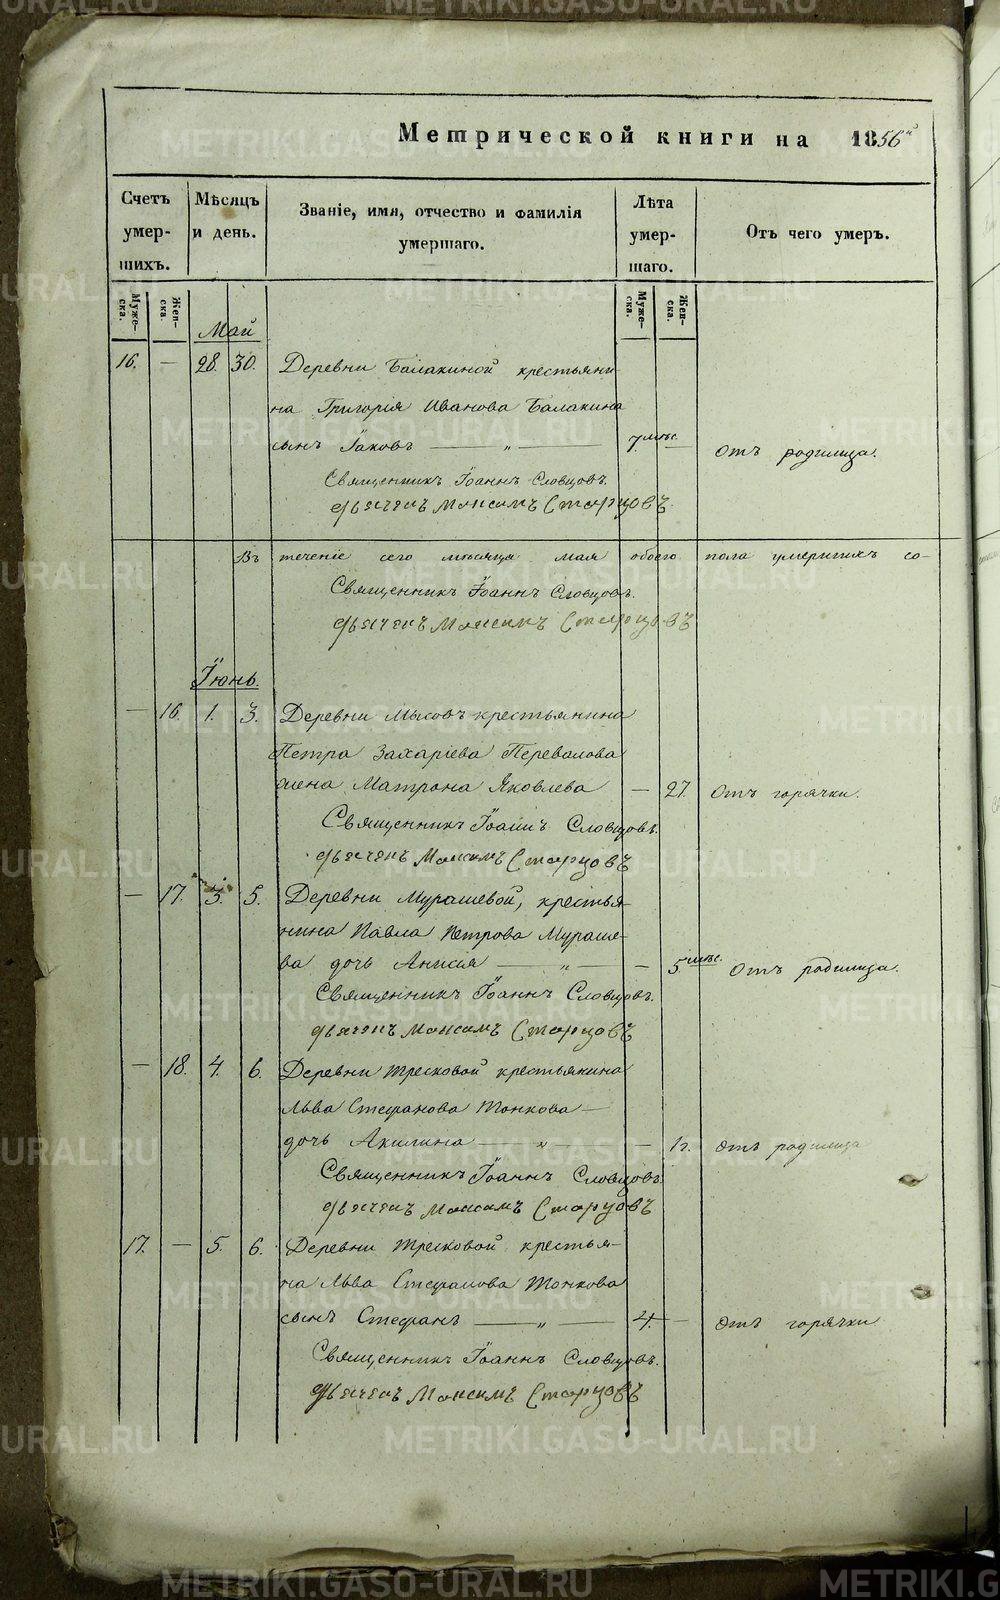 Метрической книги на 1856й
Счетъ умер- шихъ.
Мѣсяцъ и день.
Званіе, имя, отчество и фамилія умершаго.
Лѣта умер- шаго.
Отъ чего умеръ.
Муже- ска.
Жен- ска.
Муже- ска.
Жен- ска.
Май
16. — 28. 30. Деревни Балакиной крестьяни-
на Григорія Иванова Балакина
сынъ Іаковъ — „ — 7. мѣс. — Отъ родилица.
Священникъ Іоаннъ Словцовъ.
Дьячекъ Максимъ Старцовъ
Въ теченіе сего мѣсяца мая обоего пола умершихъ со-
Священникъ Іоаннъ Словцовъ.
Дьячекъ Максимъ Старцовъ
Іюнь.
— 16. 1. 3. Деревни Мысовъ крестьянина
Петра Захаріева Перевалова
жена Матрона Яковлева — 27. Отъ горячки.
Священникъ Іоаннъ Словцовъ.
Дьячекъ Максимъ Старцовъ
— 17. 3. 5. Деревни Мурашевой, крестья-
нина Павла Петрова Мураше-
ва дочь Анисія — „ — — 5. мѣс. Отъ родилица.
Священникъ Іоаннъ Словцовъ.
Дьячекъ Максимъ Старцовъ
— 18. 4. 6. Деревни Тресковой крестьянина
Льва Стефанова Тонкова —
дочь Акилина — „ — — 1г. Отъ родилица
Священникъ Іоаннъ Словцовъ.
Дьячекъ Максимъ Старцовъ
17. — 5. 6. Деревни Тресковой крестья-
на Льва Стефанова Тонкова
сынъ Стефанъ — „ — 4. — Отъ горячки
Священникъ Іоаннъ Словцовъ.
Дьячекъ Максимъ Старцовъ
METRIKI.GASO-URAL.RU